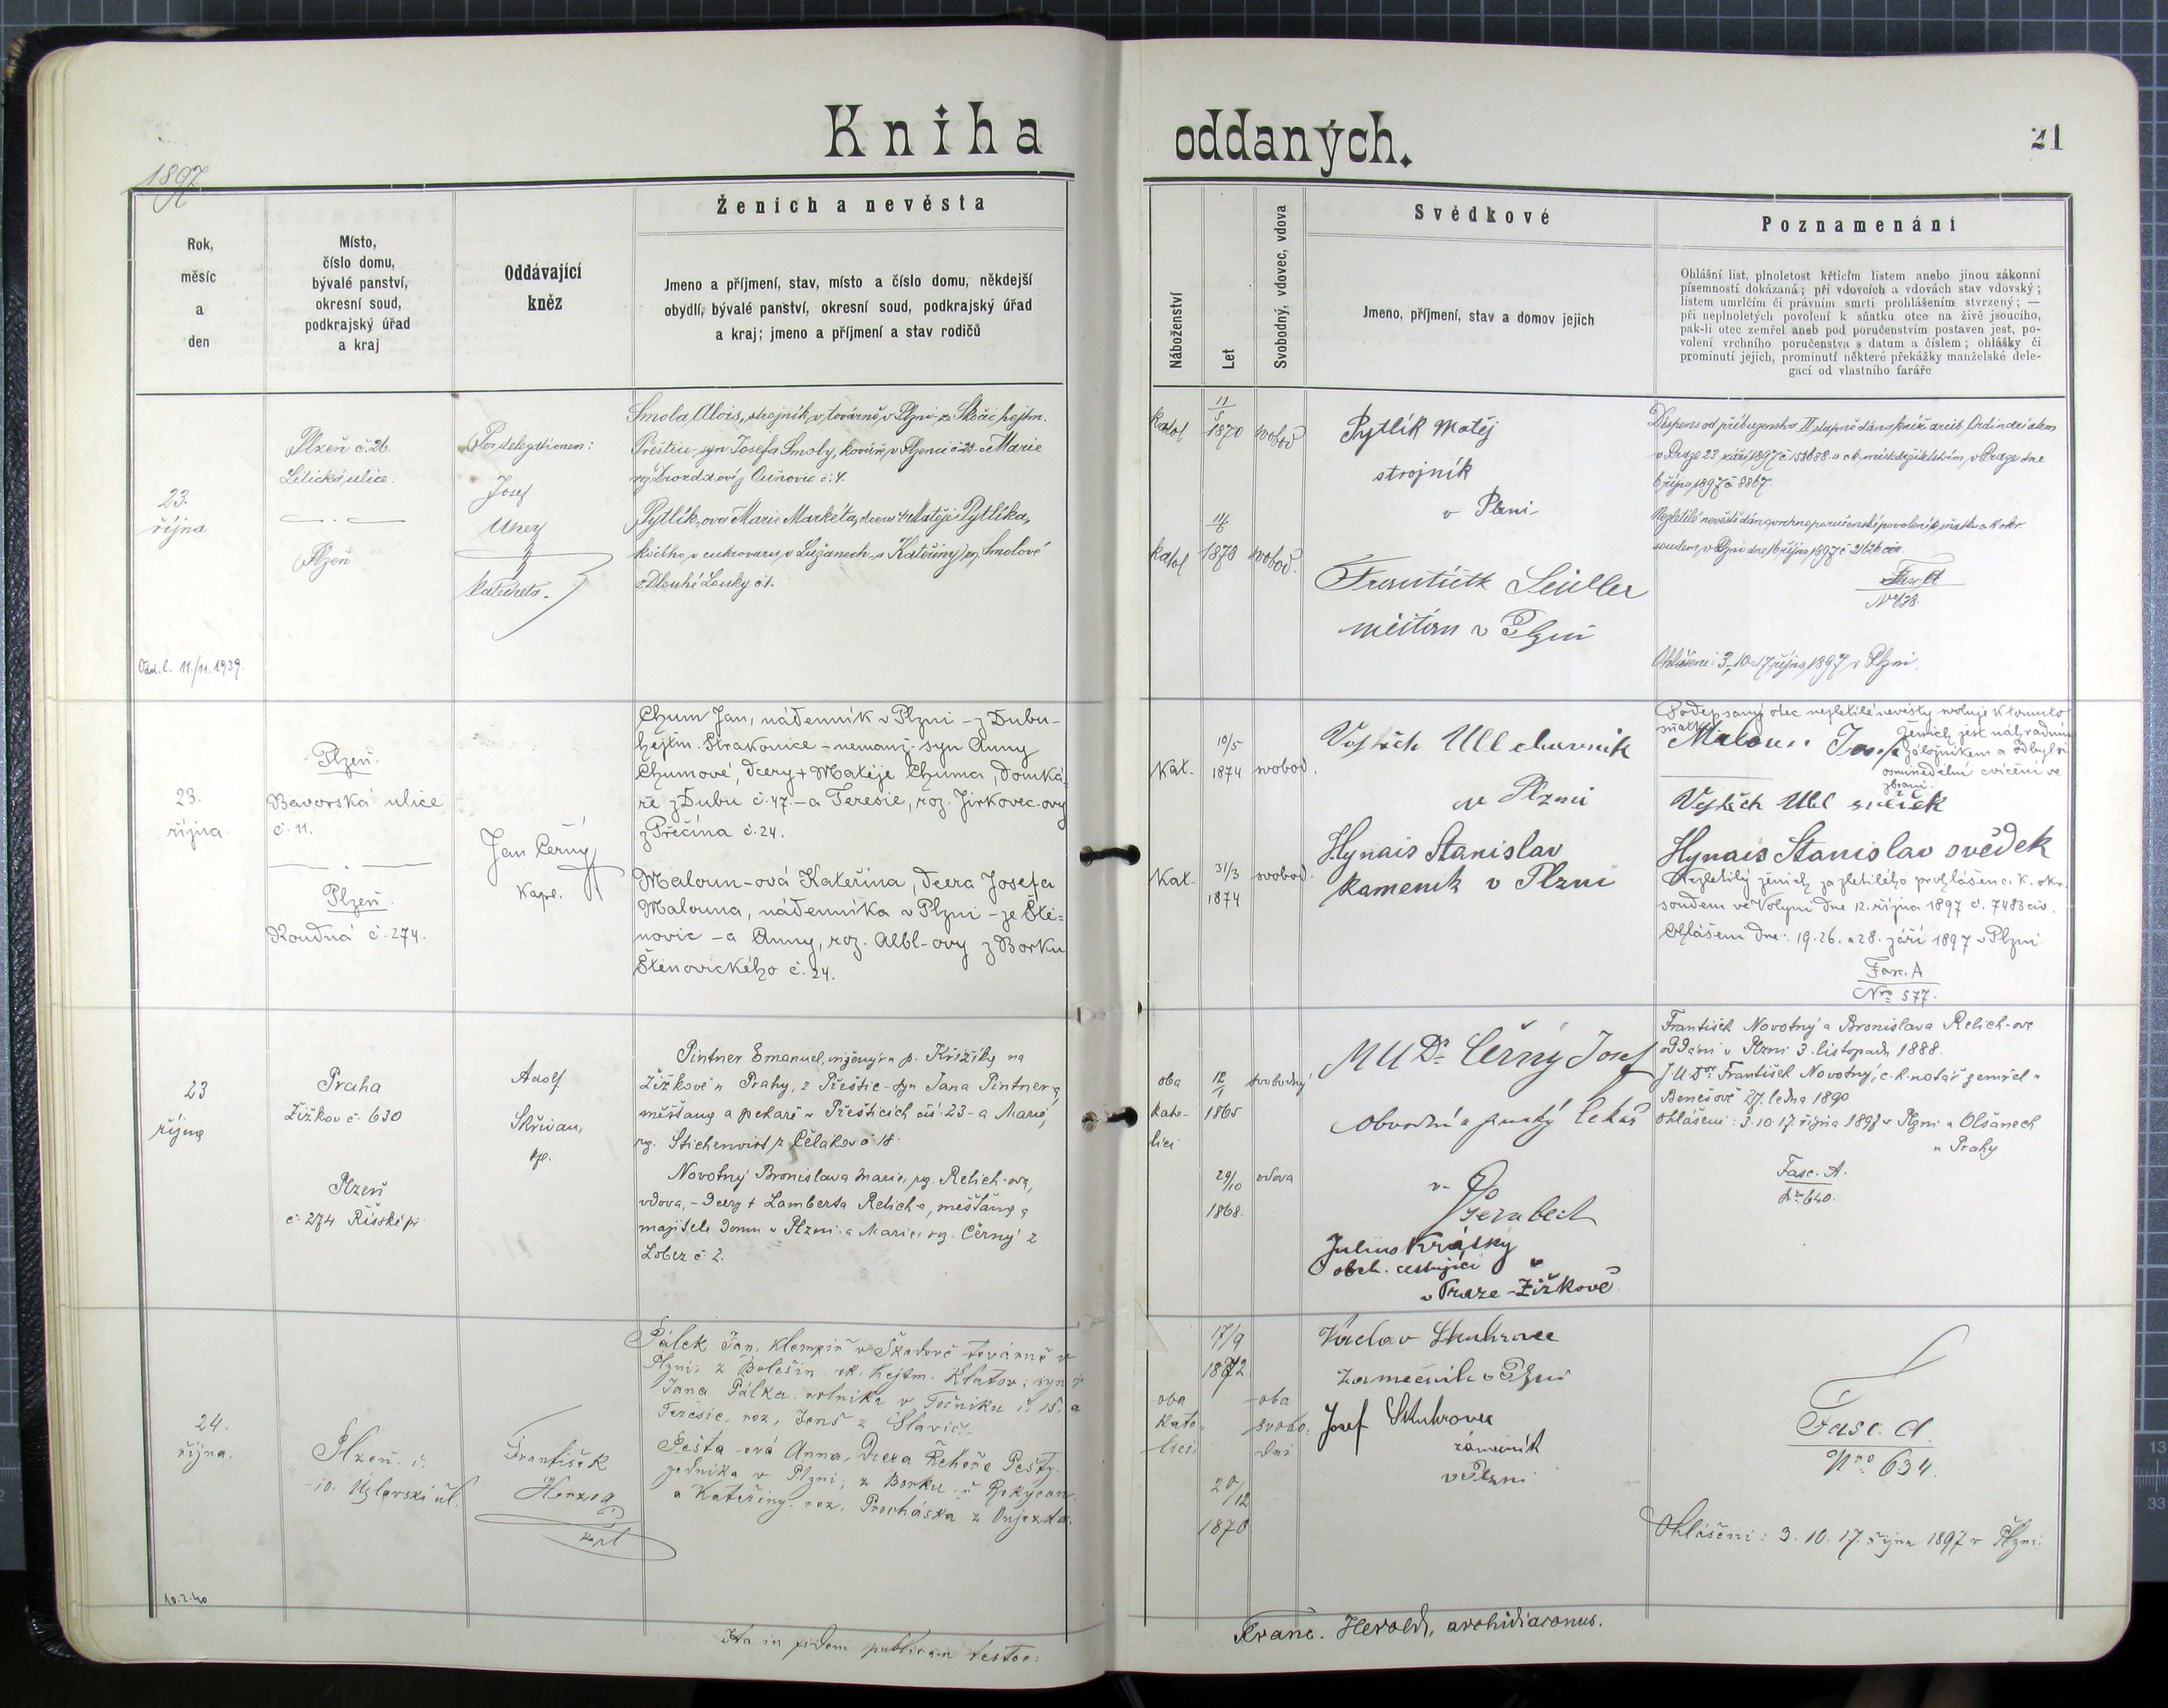 Kniha oddaných.
21
1897
Rok,
měsíc
a
den
Místo,
číslo domu,
bývalé panství,
okresní soud,
podkrajský úřad
a kraj
Oddávající
kněz
Ženich a nevěsta
Jmeno a příjmení, stav, místo a číslo domu, někdejší
obydlí, bývalé panství, okresní soud, podkrajský úřad
a kraj; jmeno a příjmení a stav rodičů
Náboženství
Let
Svobodný, vdovec, vdova
Svědkové
Jmeno, příjmení, stav a domov jejich
Poznamenání
Ohlášní list, plnoletost křticím listem anebo jinou zákonní
písemností dokázaná; při vdovcích a vdovách stav vdovský;
listem umrlčím či právním smrti prohlášením stvrzený; —
při neplnoletých povolení k sňatku otce na živě jsoucího,
pak-li otec zemřel aneb pod poručenstvím postaven jest, po-
volení vrchního poručenstva s datum a číslem; ohlášky či
prominutí jejich, prominutí některé překážky manželské dele-
gací od vlastního faráře
23.
října
Odd. l. 11./11. 1939.
Plzeň č. 26.
ulice.
Plzeň
Per delegationem:
Josef
katecheta.
Smola Alois, strojník v továrně v Plzni, ze hejtm.
Přeštice - syn Josefa Smoly, kováře, v č. 23 a Marie
roz. Drozdovy z č. 4.
Pytlík-ová Marie Markéta, dcera † Matěje Pytlíka,
kočího v cukrovaru v Lužanech a Kateřiny roz. Smolové
z Dlouhé Louky č. 1.
katol
11/5
1870
svobod
katol
1873
svobod.
Pytlík Matěj
strojník
v Plzni
František
měšťan v Plzni
Dispens od příbuzenstva II stupně dána kníž. arcib. Ordinariátem
v Praze 23. září 1897 č. a c.k. místodržitelstvím v Praze dne
6 října 1897 č.
Nezletilé nevěstě dáno vrchnoporučenské povolení k sňatku c. k. okr.
soudem v Plzni dne 16 října 1897 č. 21626 civ.
Fasc. A
Nro 638.
Ohlášeni: 3., 10. a 17. října 1897 v Plzni.
23.
října.
Plzeň.
Bavorská ulice
č. 11.
Plzeň.
Roudná č. 274.
Jan Černý
kapl.
Chum Jan, nádenník v Plzni - z Dubu-
hejtm. Strakonice - nemanž. syn Anny
Chumové, dcery † Matěje Chuma, domká-
ře z Dubu č. 47. - a Teresie, roz. Jirkovec-ovy
z Přečína č. 24.
Maloun-ová Kateřina, dcera Josefa
Malouna, nádenníka v Plzni - ze Ště-
novic - a Anny, roz. Albl-ovy z Borku
Štěnovického č. 24.
Kat.
10/5
1874
svobod.
Kat.
31/3
1874
svobod.
Vojtěch Ubl
v Plzni
Hynais Stanislav
kameník v Plzni
Podepsaný otec nezletilé nevěsty svoluje k tomuto
sňatku
Maloun Josef
Ženich jest náhradním
záložníkem a odbyl si
osminedělní cvičení ve
zbrani.
Vojtěch Ubl svědek
Hynais Stanislav svědek
Nezletilý ženich za zletilého prohlášen c. k. okr.
soudem ve Volyni dne 12. října 1897 č. 7483 civ.
Ohlášeni dne: 19. 26. a 28. září 1897 v Plzni.
Fasc. A
Nro 577.
23
října
Praha
Žižkov č. 630
Plzeň
č. 274 Říšské př.
Adolf
Skřivan,
kpl.
Pintner Emanuel, inženýr u p. Křižíka na
Žižkově u Prahy, z Přeštic - syn Jana Pintnera,
měšťana a pekaře v Přešticích čís. 23 - a Marie,
roz. č. 18.
Novotný Bronislava Marie, roz. Relich-ova,
vdova, - dcery † Lamberta Relicha, měšťana a
majitele domu v Plzni a Marie, roz. Černý z
Lobez č. 2.
oba
kato-
líci
12/1
1865
svobodný
29/10
1868.
vdova
MUDr. Černý Josef
obvodní a lékař
v
Julius Krásný
obch. cestující
v Praze-Žižkově
František Novotný a Bronislava Relich-ova
oddáni v Plzni 3. listopadu 1888.
JUDr František Novotný, c. k. notář zemřel v
Benešově 27. ledna 1890
Ohlášeni: 3. 10. 17. října 1897 v Plzni a Olšanech
u Prahy
Fasc. A.
Nro 640.
24.
října.
10.2.40
Plzeň. č.
10. ul.
František
Herzog
kapl
Pálek Jan, klempíř v Škodově továrně v
Plzni; z Bolešin ok. hejtm. Klatov; syn †
Jana Pálka, rolníka v Točníku č. 15. a
Terezie, roz. Jenš z
Pešta-ová Anna, dcera Řehoře Pešty
zedníka v Plzni; z Borku u Rokycan
a Kateřiny roz. Procháska z Oujezda.
oba
kato-
líci
17/9
1872
oba
svobo-
dni
20/12
1870
Václav Skuhrovec
zámečník v Plzni
Josef Skuhrovec
zámečník
v Plzni
Fasc. A.
Nro 634.
Ohlášeni: 3. 10. 17. října 1897 v Plzni.
Ita in fidem publicam testor:
Franc. Herold, archidiaconus.